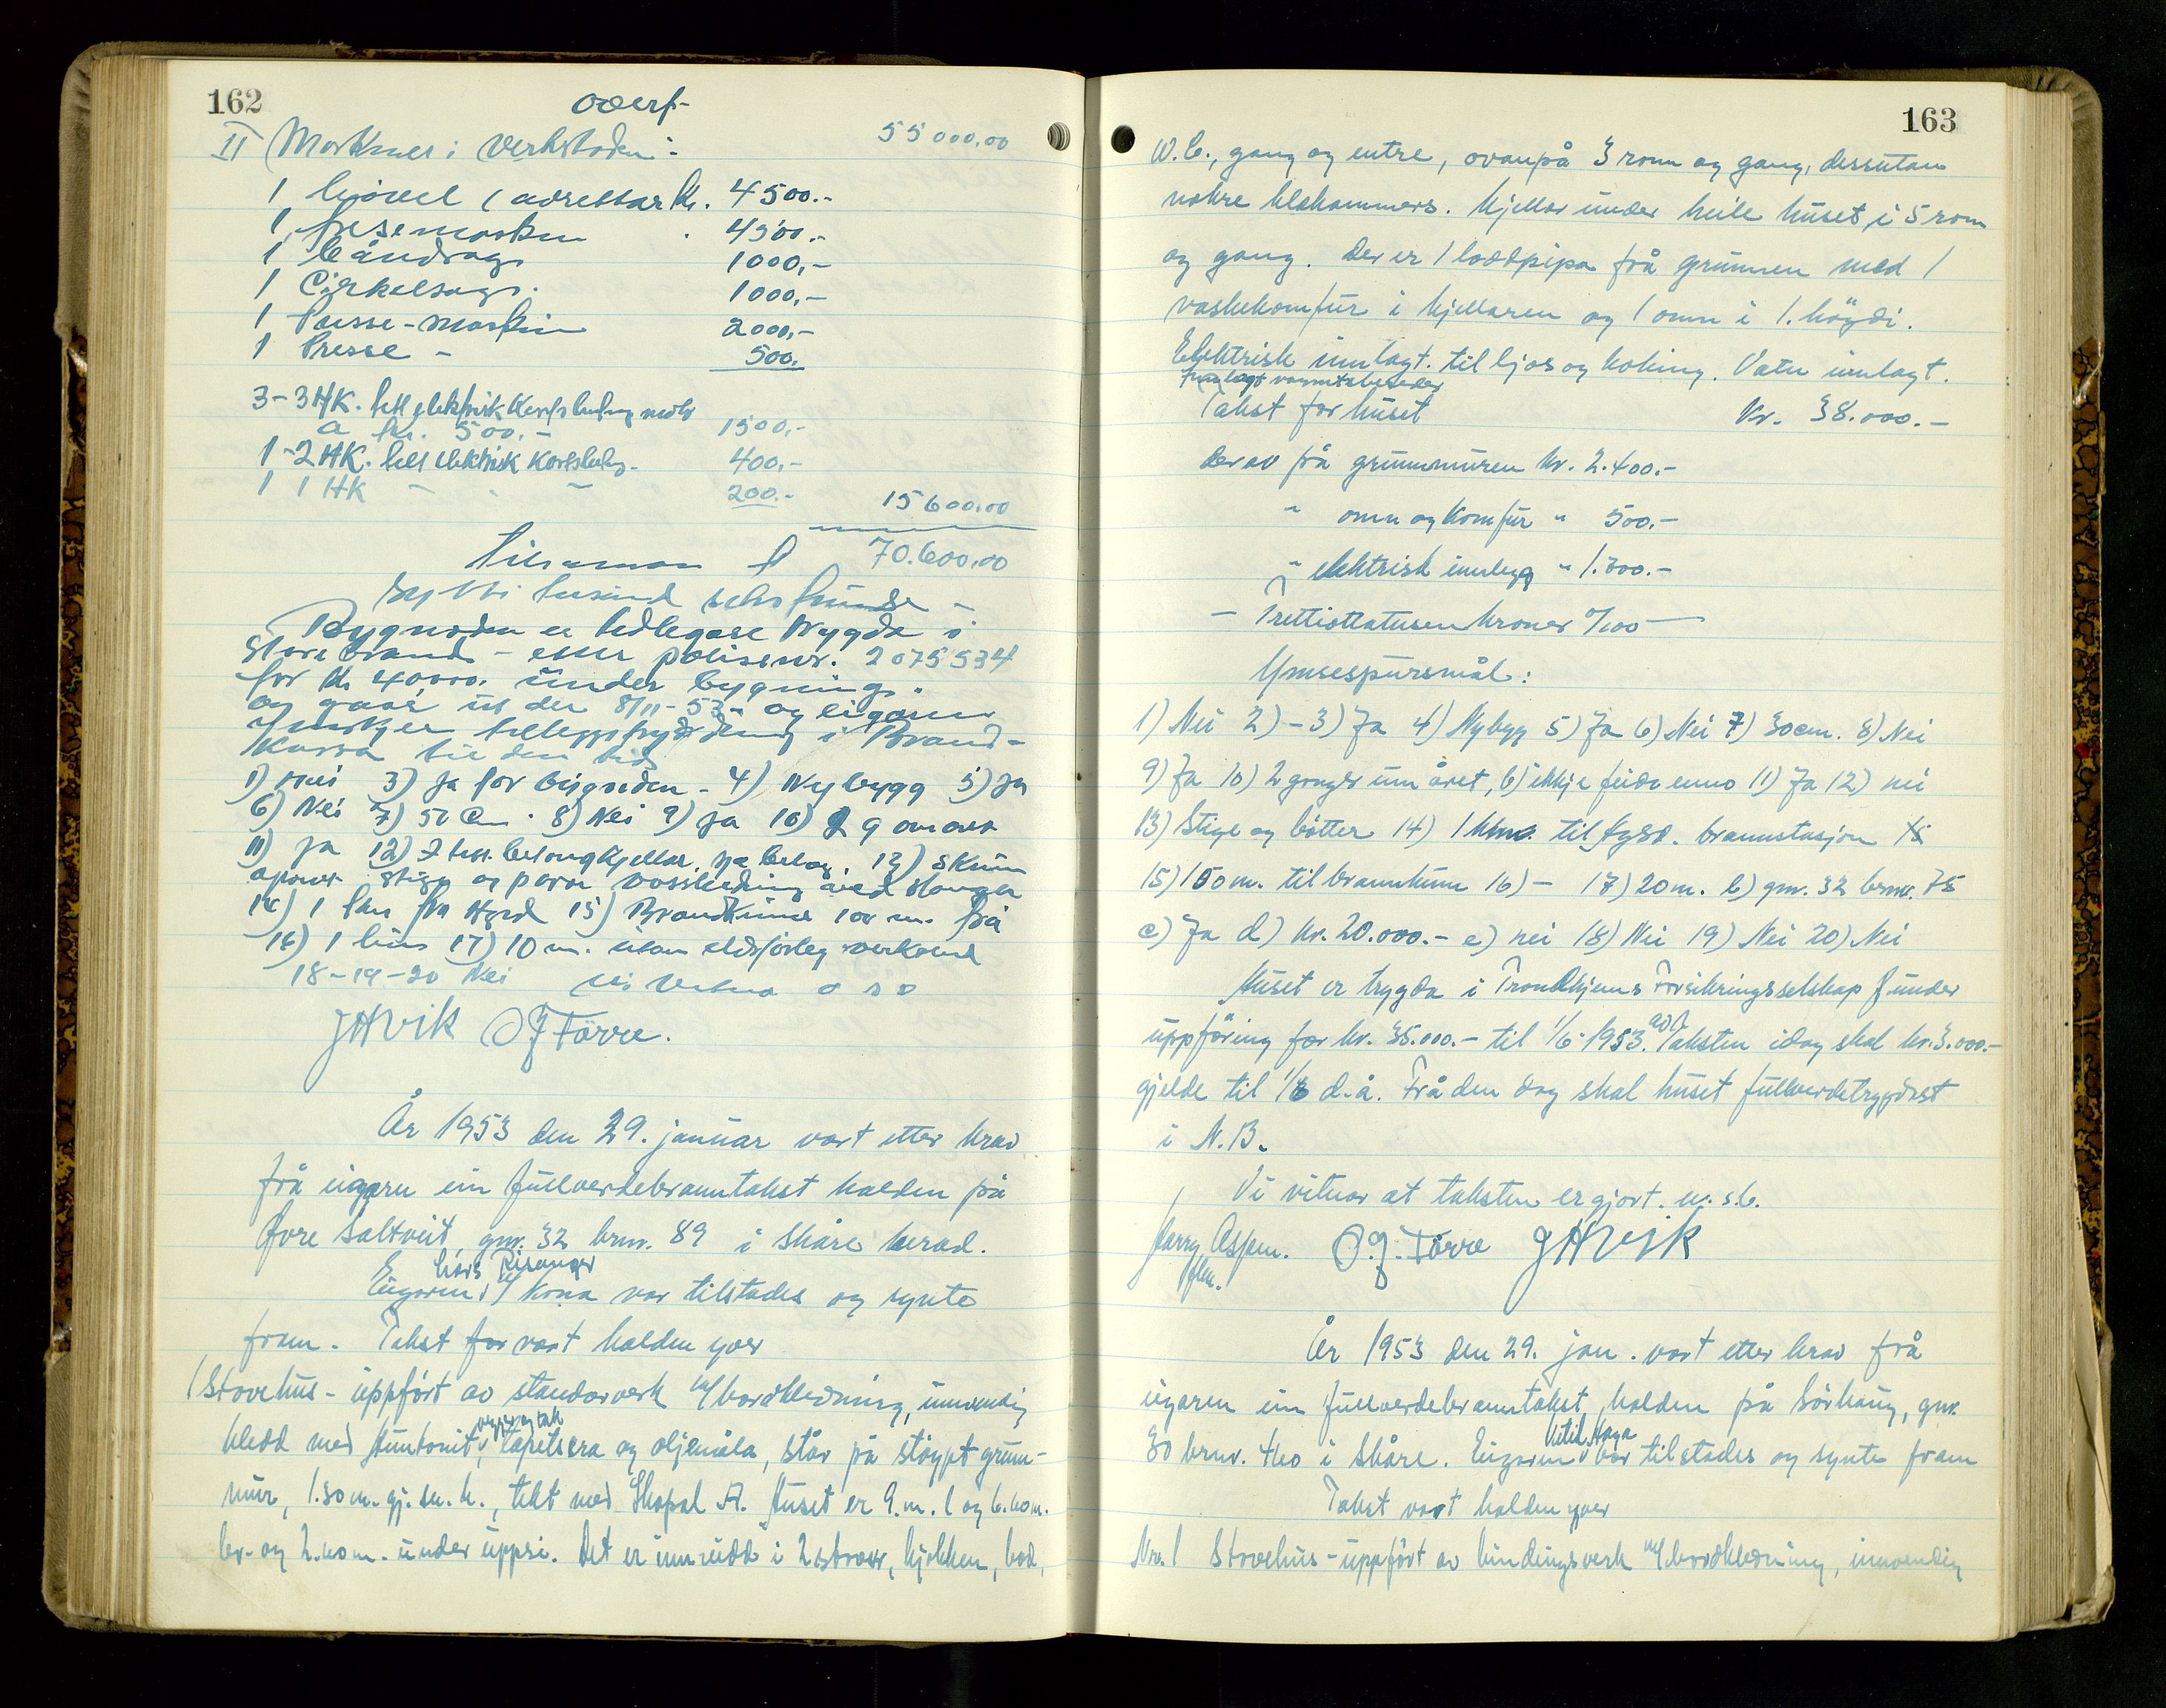 162
overf-
II Maskiner i Verkstaden:- 55000.00
1 høvel (avrettar kr. 4500.-
1 fresemaskin 4500.-
1 båndsag 1000,-
1 Cirkelsag. 1000,-
1 Pusse-maskin 2000,-
1 Presse - 500.
3-3HK. hell elektrisk
a kr. 500.- 1500,-
1-2HK. hell elektrisk 400,-
1 1 HK - - 200.- 15600.00
Tilsaman kr 70.600,00
sytti tusund seks hundre -
Bygnaden er tidlegare trygda i
Storebrand - etter polisenr. 2075534
for kr 40000. under bygning.
og gaar ut den 8/11-53- og eigaren
ynskjer tilleggstrygding i Brand-
kassa til den tid
1) Nei 3) ja for bygnaden - 4) Nybygg 5) ja
6) Nei 7) 50 Cm. 8) Nei 9) ja 10) 2 g om aaret
11) ja 12) ja betong. 13) Skum
aparat stige og vassleidning med slanger
14) 1 km fra Hgsd 15) Brandkume 100 m. frå
16) 1 hus 17) 10 m. utan eldsfarleg verksemd
18-19-20 Nei Vi Vitnar o s v
JHVik O J Førre.
År 1953 den 29. januar vart etter krav
frå eigaren ein fullverdebranntakst halden på
Øvre Saltveit, gnr. 32 brnr. 89 i Skåre herad.
Lars Risanger
Eigaren v/ kona var tilstades og synte
fram. Takst for vart halden yver
1 Stovehus - uppført av standarverk m/ bordkledning, innvendig
vegger og tak
kledd med Huntonit, tapetsera og oljemåla, står på støypt grunn-
mur, 1.30 m. gj. sn. h., tekt med Skopal A. Huset er 9. m. l og 6.40 m.
br. og 2.40 m. under uppsi. Det er innreidd i 2 stover, kjøkken, bad,
163
W.C., gang og entre, ovanpå 3 rom og gang, dessutan
nokre klekammers. Kjellar under heile huset i 5 rom
og gang. Der er 1 loddpipa frå grunnen med 1
vaskekomfur i kjellaren og 1 omn i 1. høgdi.
Elektrisk innlagt til ljos og koking. Vatn innlagt.
Innlagt varmtvatsbereder
Takst for huset Kr. 38.000.-
derav på grunnmuren kr. 2.400.-
" omn og komfur " 500.-
" elektrisk innlegg " 1.300.-
- Trettiottetusen kroner 0/100 -
Ymsespursmål:
1) Nei 2) - 3) Ja 4) Nybygg 5) Ja 6) Nei 7) 30cm. 8) Nei
9) Ja 10) 2 gonger um året, b) ikkje feida enno 11) Ja 12) nei
13) Stige og bøtter 14) 1 km. til Hgsd. brannstasjon
15) 150 m. til brannkum 16) - 17) 20 m. b) gnr. 32 brnr. 75
c) Ja d) kr. 20.000.- e) nei 18) Nei 19) Nei 20) Nei
Huset er trygda i Trondhjems Forsikringsselskap f under
uppføring for kr. 35.000.- til 1/6-1953. Av Taksten idag skal kr. 3.000.-
gjelde til 1/6 d.å. Frå den dag skal huset fullverdetrygdast
i N.B.
Vi vitnar at taksten er gjort. o. s. b.
Harry Aspen. O.J. Førre JHVik
flm.
År 1953 den 29. jan. vart etter krav frå
eigaren ein fullverdebranntakst halden på Sørhaug, gnr.
Ketil Haga
30 brnr. 460 i Skåre. Eigaren var tilstades og synte fram
Takst vart halden yver
Nr. 1 Stovehus - uppført av bindingsverk m/ bordkledning, innvendig